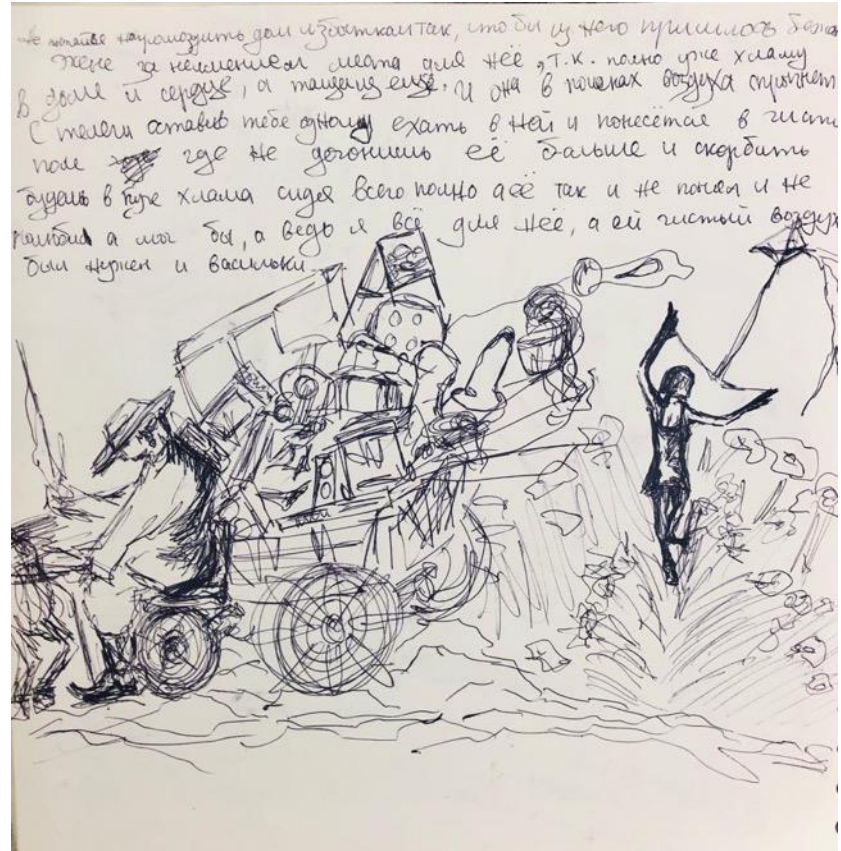 Не пытайся нагромоздить дом избытком так, чтобы из него пришлось бежа
Жене за неимением места для неё, т.к. полно уже хламу
в доме и сердце, а тащишь еще. И она в поисках воздуха спрыгнет
С телеги оставив тебе одному ехать в ней и понесётся в чисто
поле где не догонишь её больше и скорбить
будешь в куче хлама сидя всего полно а её так и не понял и не
полюбил а мог бы, а ведь я всё для неё, а ей чистый воздух
был нужен и васильки